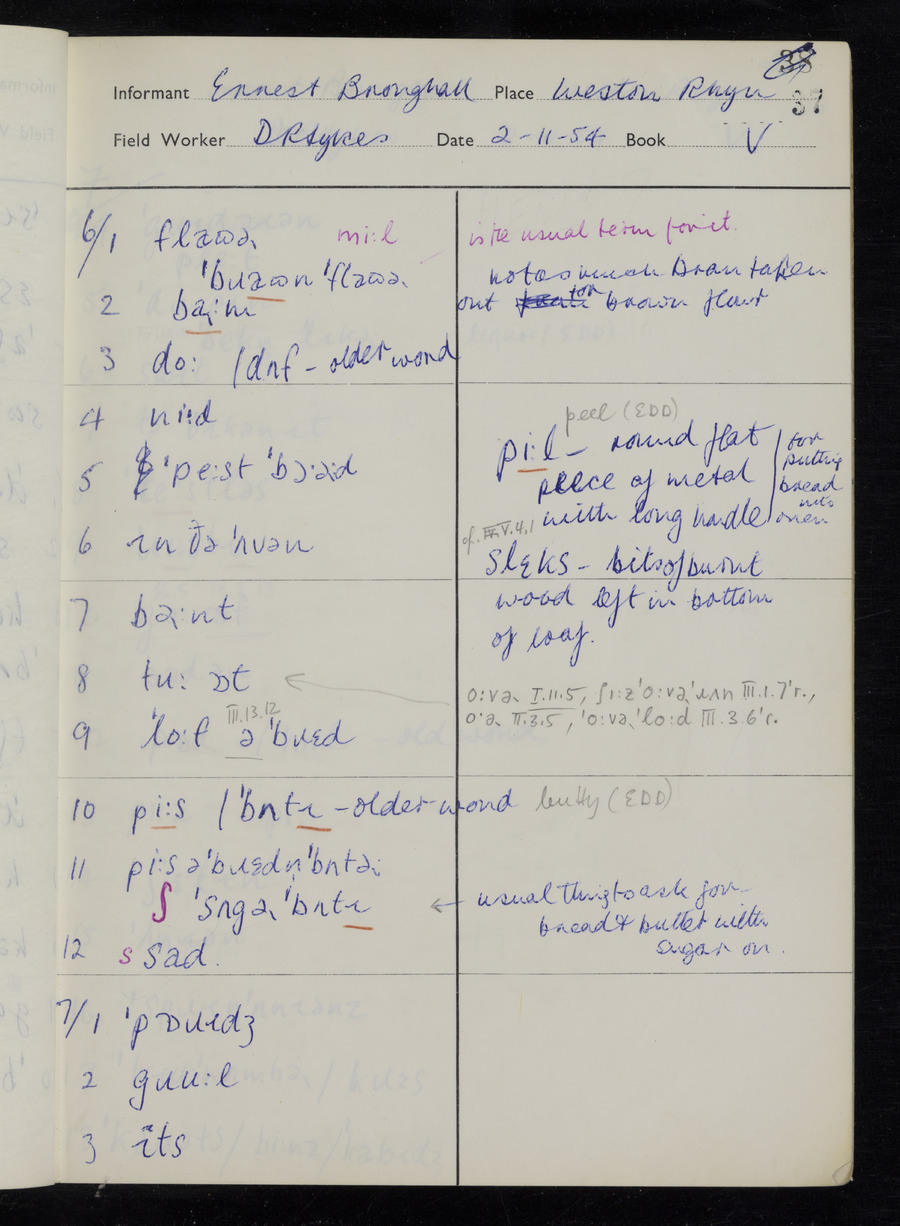 38
37
Informant Ernest Broughall Place Weston Rhyn
Field Worker D R Sykes Date 2-11-54 Book V
6/1 flaʊə˞ mi:l is the usual term for it.
ˈbɹaʊn ˈflaʊə˞ not as much bran taken
out for brown flour
2 bə˞:m
3 do: / dʌf – older word
4 ni:d
peel (EDD)
5 ˈpe:st ˈbɔ:ə˞d
pi:l – round flat
piece of metal
with long handle
for
putting
bread
into
oven
6 ɪn ðə ˈʌvən
cf. V.4.1
slɛks – bits of burnt
wood left in bottom
of loaf.
7 bə˞:nt
8 tu: ɒt
o:və˞ I.11.5, ʃi:z ˈo:və˞ˈɹʌn III.1.7 r.,
o:ə˞ II.3.5, ˈo:və˞ˈlo:d III.3.6 r.
III.13.12
9 ˈlo:f ə ˈbɹɛd
10 pi:s / ˈbʌtɪ – older word butty (EDD)
11 pi:s ə ˈbɹɛdn̩ ˈbʌtə˞
ʃ ˈsʌgə˞ ˈbʌtɪ ← usual thing to ask for –
bread & butter with
sugar on.
12 s sad.
7/1 ˈpɒɹɪdʒ
2 gɹu:l
3 ɪts